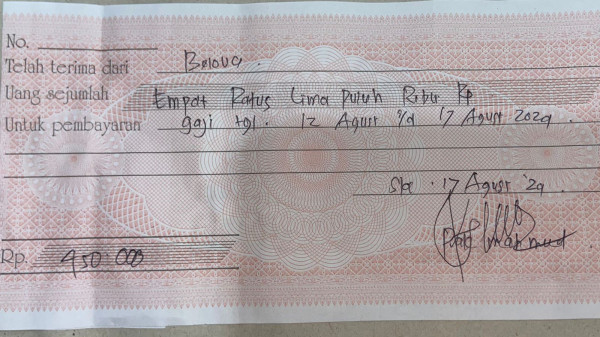 No.
Telah terima dari Belova.
Uang sejumlah Empat Ratus Lima Puluh Ribu Rp
Untuk pembayaran gaji tgl. 12 Agust s/d 17 Agust 2024.
17 Agust '24.
Rp. 450 000